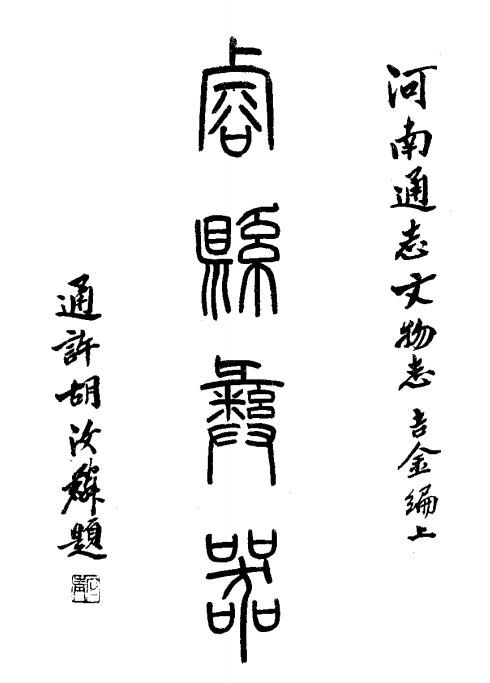 河南通志文物志吉金編上
㕡縣彝器
通許胡汝麟題